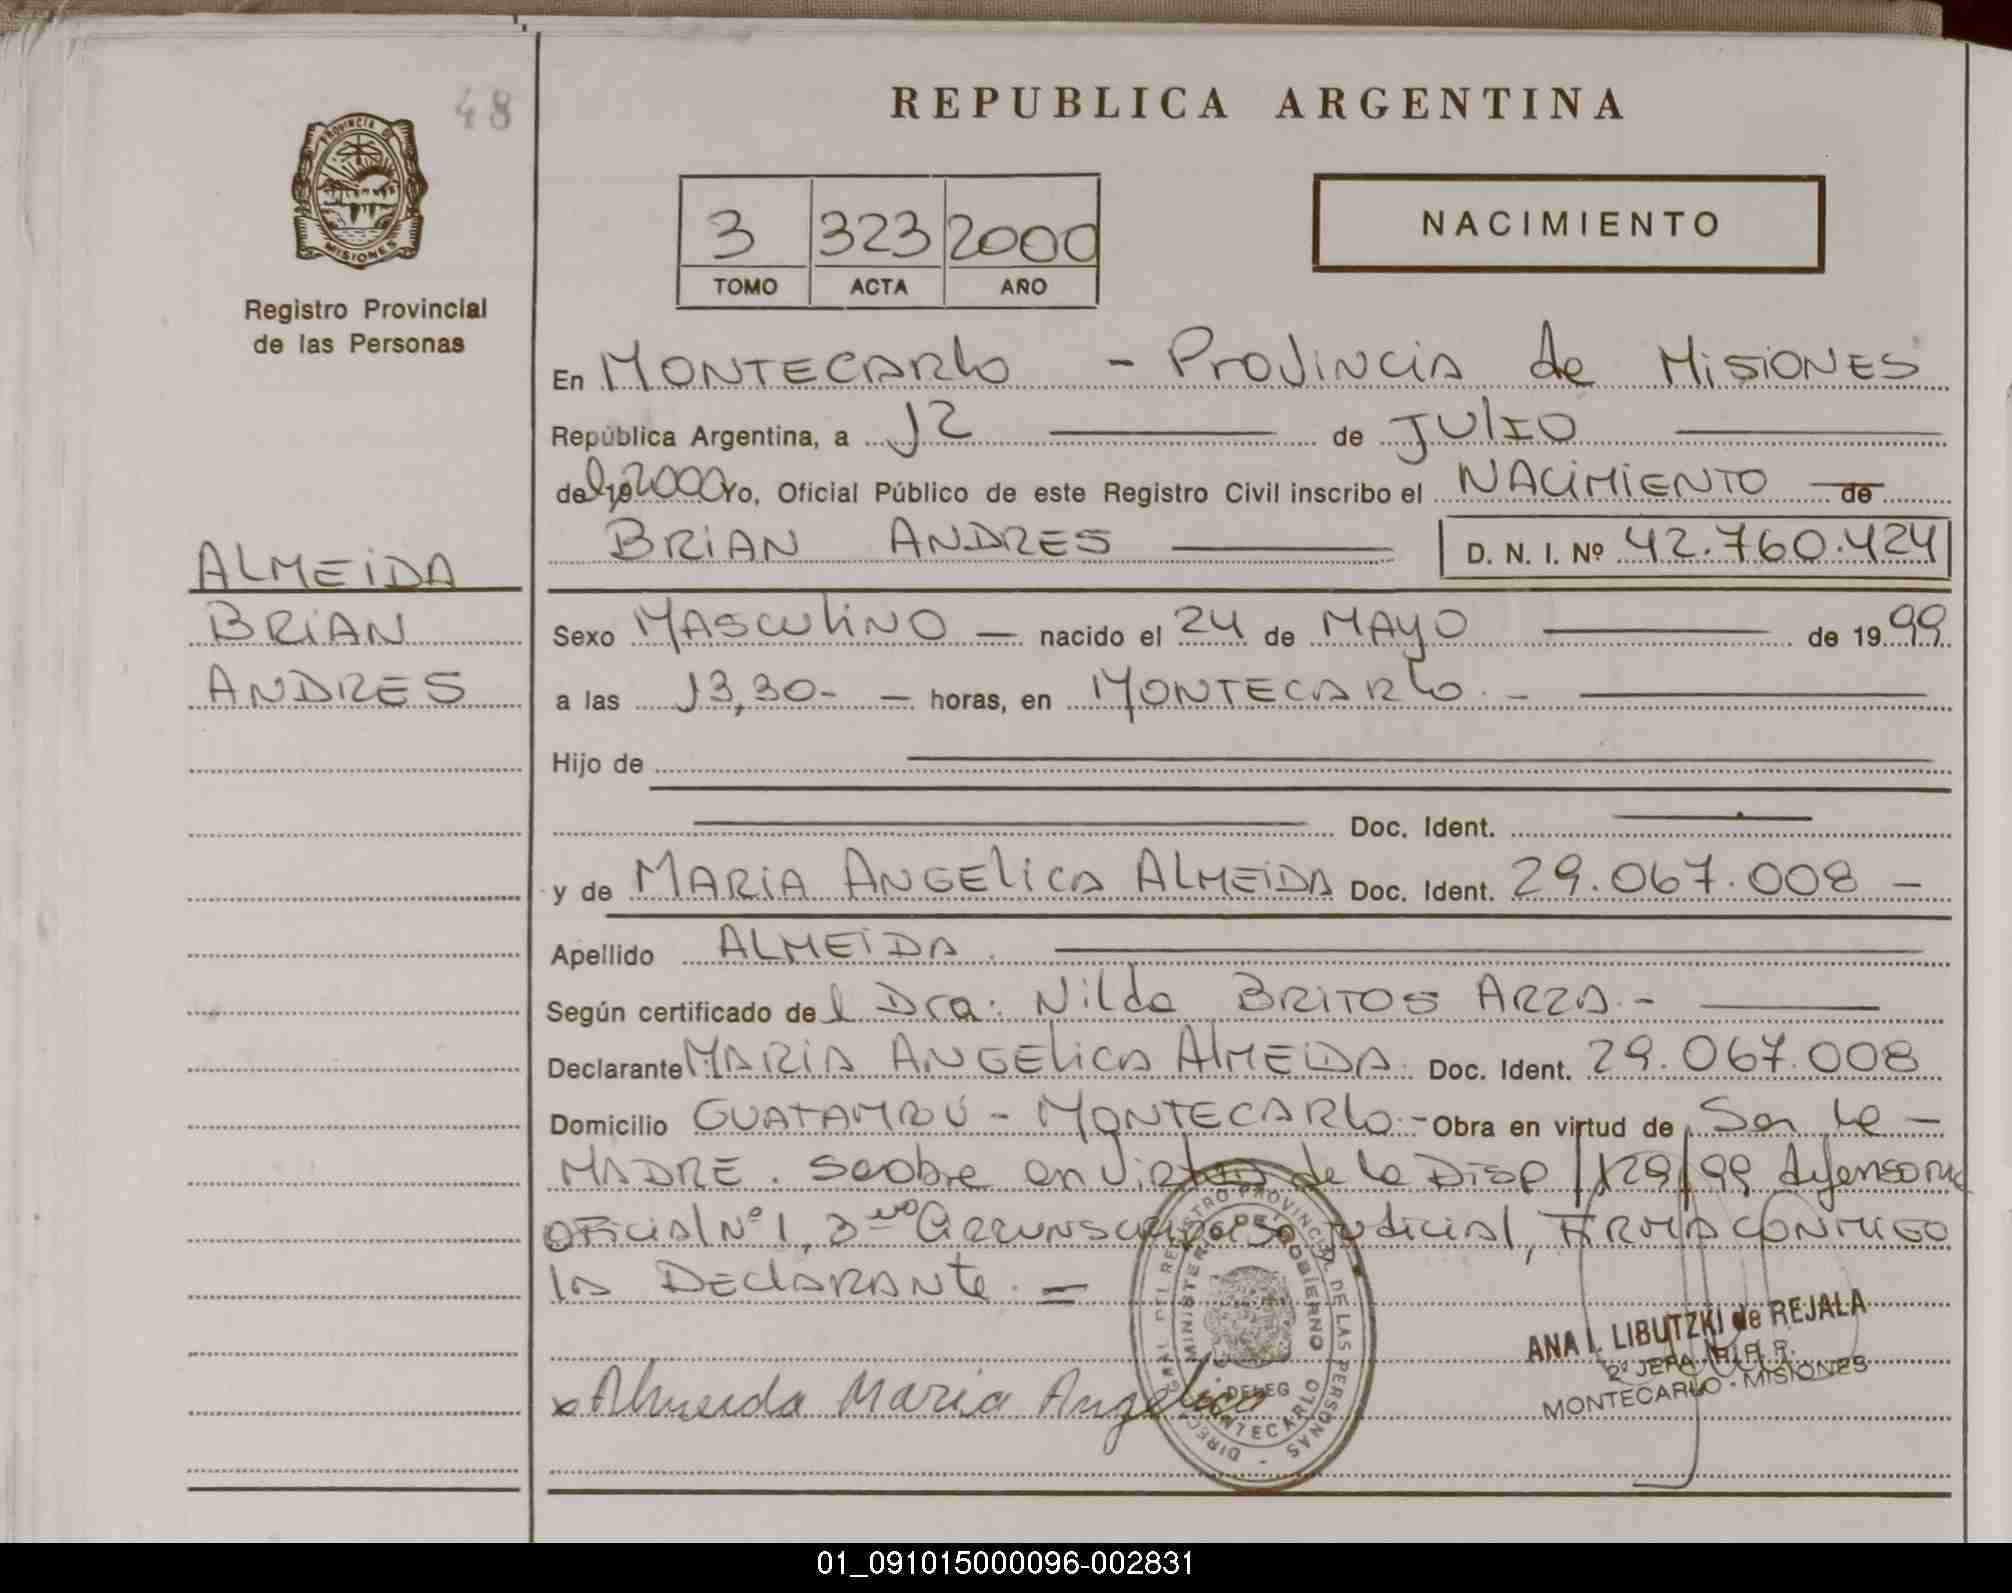 48
REPUBLICA ARGENTINA
PROVINCIA DE
MISIONES
Registro Provincial
de las Personas
3 323 2000
TOMO ACTA AÑO
NACIMIENTO
En MONTECARlo - PROVINCIA de MISIONES
República Argentina, a 12 de JULIO
del 2000 Yo, Oficial Público de este Registro Civil inscribo el NACIMIENTO de
BRIAN ANDRES D. N. I. Nº 42.760.424
ALMEIDA
BRIAN
ANDRES
Sexo MASCULINO — nacido el 24 de MAYO de 1999
a las 13,30- — horas, en MONTECARlo. -
Hijo de
Doc. Ident.
y de MARIA ANGELICA ALMEIDA Doc. Ident. 29.067.008 —
Apellido ALMEIDA.
Según certificado del Dra: Nilda BRITOS ARZA.-
Declarante MARIA ANGELICA ALMEIDA. Doc. Ident. 29.067.008
Domicilio GUATAMBÚ - MONTECARlo.- Obra en virtud de Ser la -
MADRE. Se obre en Virtud de la Disp 129/99 defensoria
OFICIAl Nº 1, 3 judicial, FIRMA CONMIGO
lA DEClARANte. =
ANA I. LIBUTZKI de REJALA
MONTECARLO - MISIONES
x Almeida Maria Angelica
DIREC. GRAL. DEL REGISTRO PROVINCIAL DE LAS PERSONAS
MINISTERIO DE GOBIERNO
DELEG
MONTECARLO
01_091015000096-002831